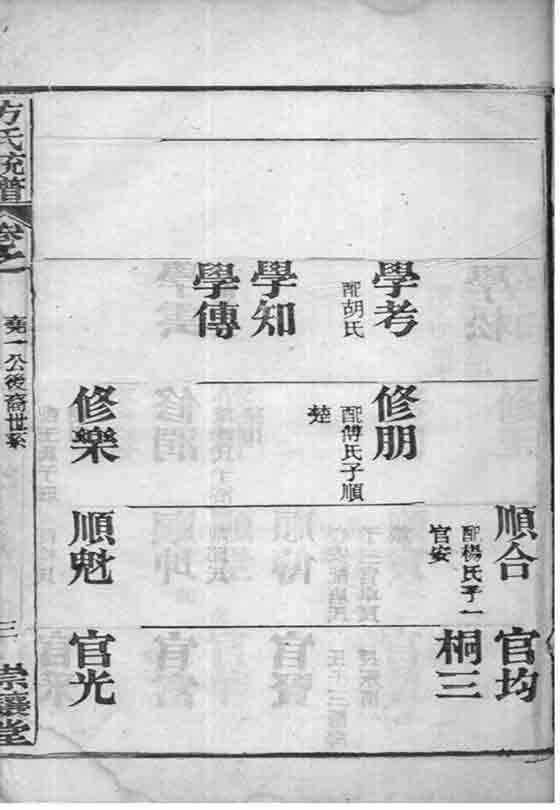 學考
配胡氏
學知
學傳
修朋
配傅氏子順
楚
修樂
順合
配楊氏子一
官安
順魁
官均
桐三
官光
方氏
卷之一
堯一公後裔世系
三
堂